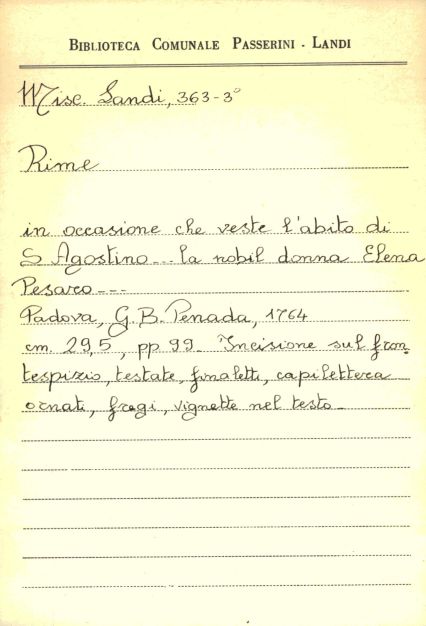 BIBLIOTECA COMUNALE PASSERINI - LANDI
Misc. Landi, 363-3°
Rime
in occasione che veste l'abito di
S Agostino... la nobil donna Elena
Pesaro ---
Padova, G.B. Penada, 1764
cm. 29,5, pp 99. Incisione sul fron-
tespizio, testate, finaletti, capilettera
ornati, fregi, vignette nel testo.